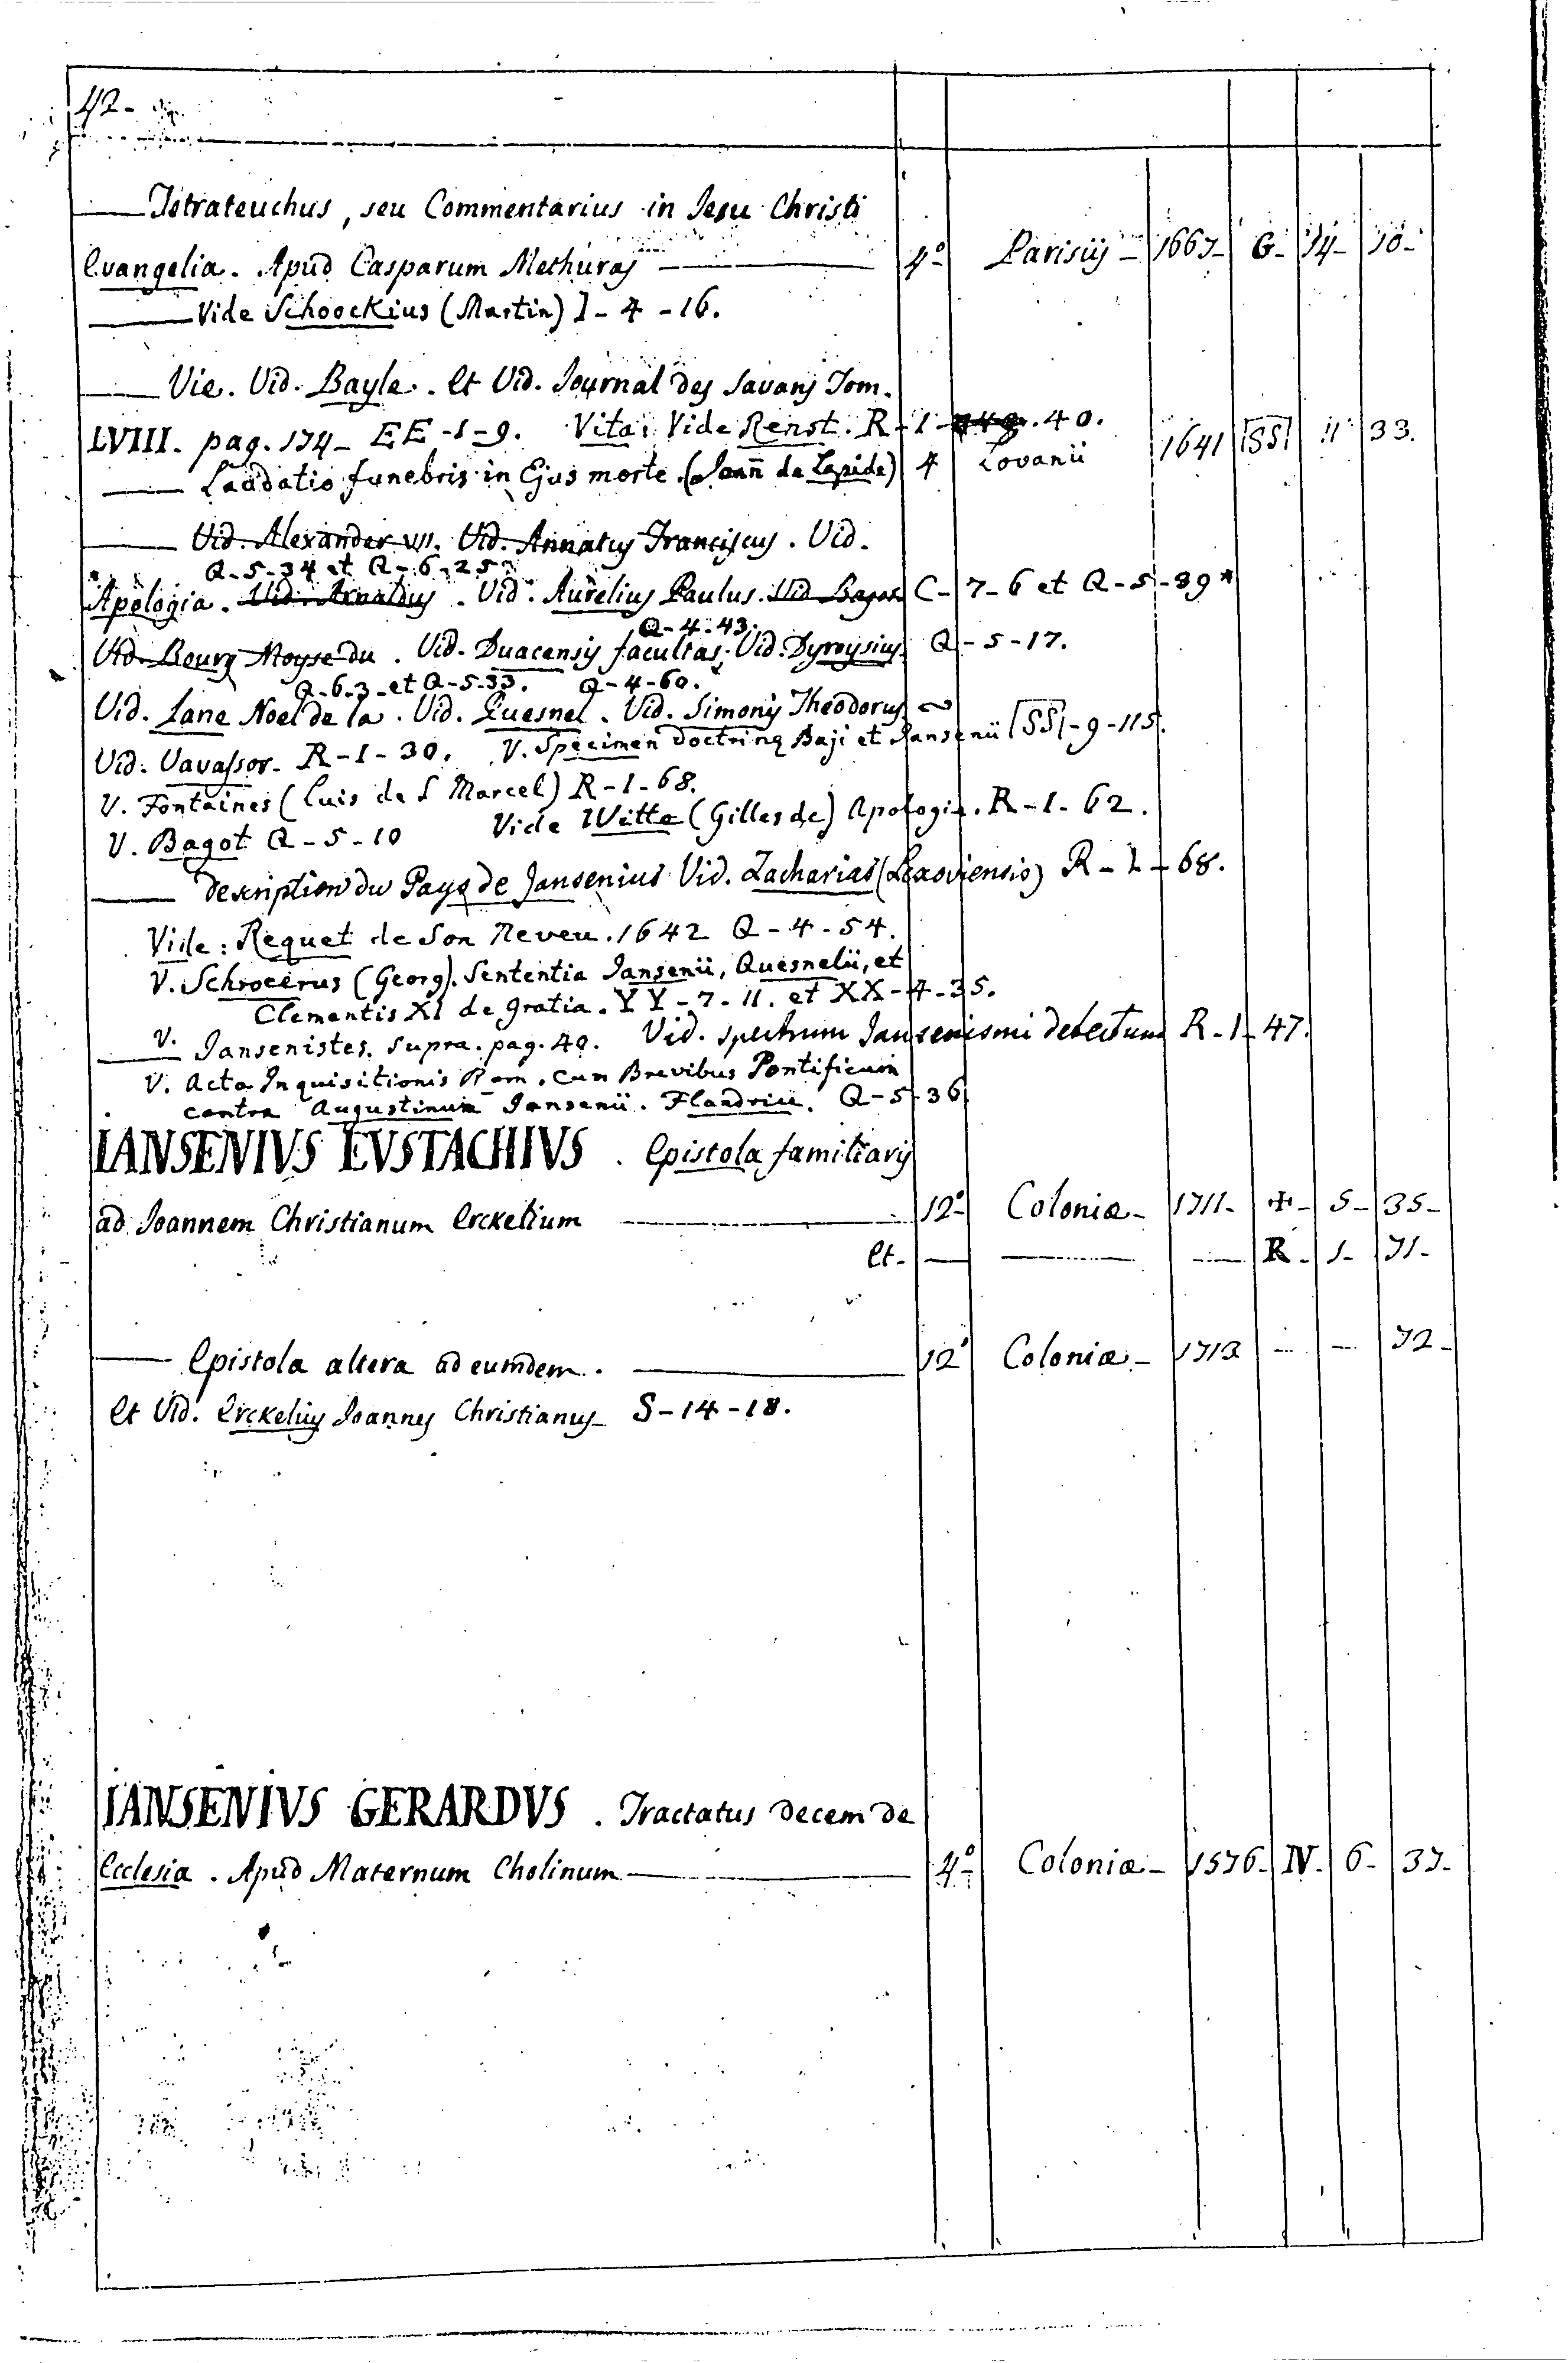 42-
—— Tetrateuchus, seu Commentarius in Iesu Christi
Evangelia. Apud Casparum Methuras —— 4º Parisiis - 1667- G- 14- 10-
—— Vide Schoockius (Martin) I-4-16.
—— Vie. Vid. Bayle. Et Vid. Journal des Savans Tom.
LVIII. pag. 174- EE-1-9. Vita: Vide Renst. R-1-.40.
—— Laudatio funebris in Ejus morte (Joañ de Lapide) 4 Lovanii 1641 SS 11 33.
—— Vid. Alexander VII. Vid. Annatus Franciscus. Vid.
Q-5-34 et Q-6-25
Apologia. Vid. Arnaldus. Vid. Aurelius Paulus. Vid Bagot C-7-6 et Q-5-39*
Q-4-43.
Vid. Bourg Moyse du. Vid. Duacensis facultas. Vid. Dyroysius. Q-5-17.
Q-6-3-et Q-5-33. Q-4-60.
Vid. Lane Noel de la. Vid. Quesnel. Vid. Simonis Theodorus
Vid. Vavassor- R-1-30. V. Specimen doctrinæ Baji et Jansenii SS-9-115.
V. Fontaines (Luis de S Marcel) R-1-68.
V. Bagot Q-5-10 Vide Witte (Gilles de) Apologia. R-1-62.
—— Description du Pays de Jansenius Vid. Zacharias (Lexoviensis) R-1-68.
Vide: Requet de Son Neveu. 1642 Q-4-54.
V. Schroeerus (Georg). Sententia Jansenii, Quesnelii, et
Clementis XI de gratia. YY-7-11. et XX-4-35.
—— V. Jansenistes. supra. pag. 40. Vid. spectrum Jansenismi detectum R-1-47.
V. Acta Inquisitionis Rom. cum Brevibus Pontificum
contra Augustinum Jansenii. Flandriæ. Q-5-36
IANSENIVS EVSTACHIVS. Epistola familiaris
ad Ioannem Christianum Erckelium —— 12º- Coloniæ- 1711- ✢- 5- 35-
Et- —— —— —— R- 1- 71-
—— Epistola altera ad eumdem. —— 12º Coloniæ- 1713 -- -- 72-
Et Vid. Erckelius Ioannes Christianus- S-14-18.
IANSENIVS GERARDVS. Tractatus decem de
Ecclesia. Apud Maternum Cholinum —— 4º- Coloniæ- 1576- IV- 6- 37-